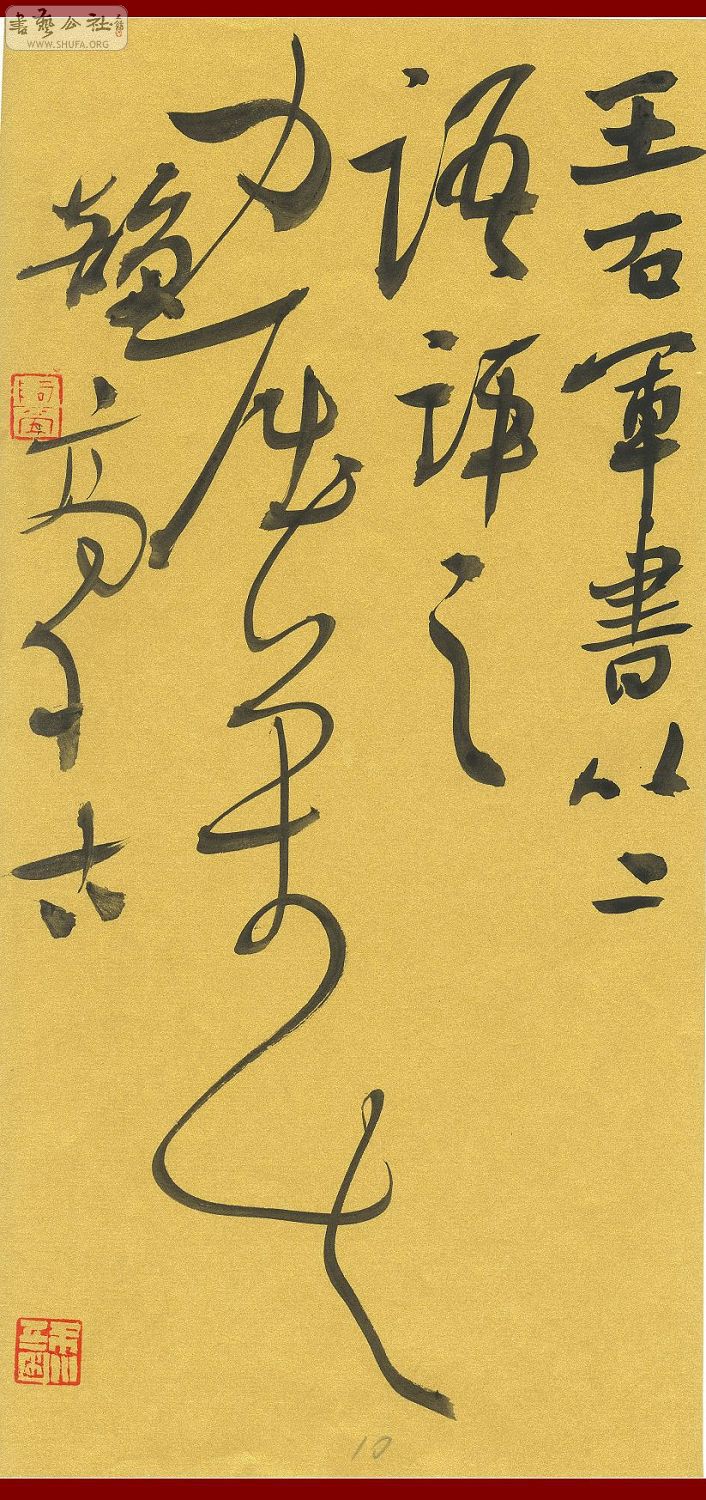 書藝公社
WWW.SHUFA.ORG
王右軍書以二
語評之
力屈萬夫
韻高千古
10